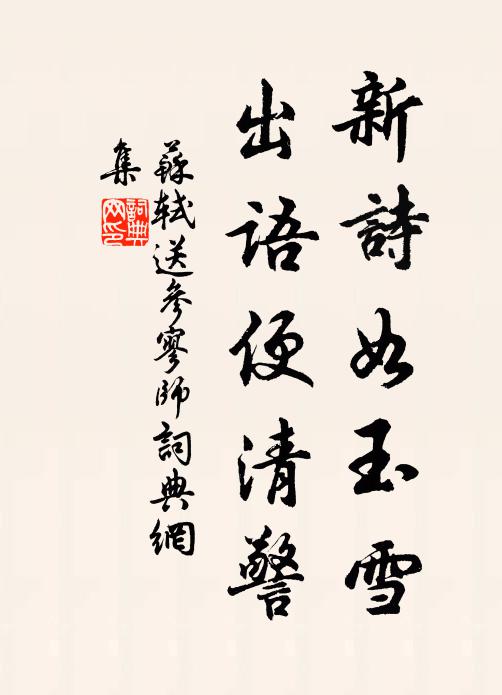 新詩如玉雪
出語便清警
蘇軾送參寥師詞典網
集
詞典
网印